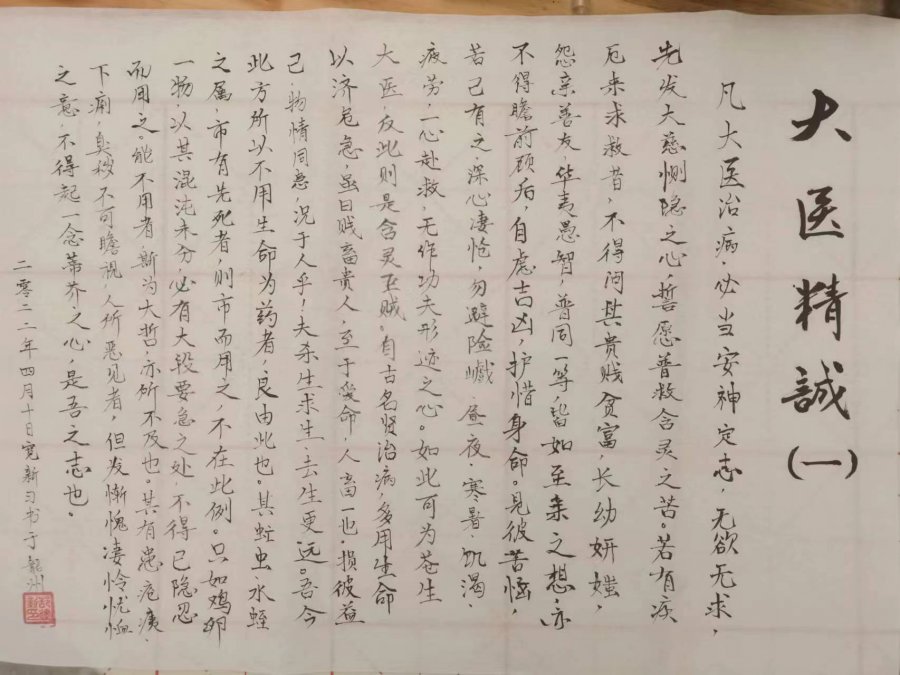 大医精誠(一)
凡大医治病，必当安神定志，无欲无求，
先发大慈恻隐之心，誓愿普救含灵之苦。若有疾
厄来求救者，不得问其贵贱贫富，长幼妍媸，
怨亲善友，华夷愚智，普同一等，皆如至亲之想，亦
不得瞻前顾后，自虑吉凶，护惜身命。见彼苦恼，
若己有之，深心凄怆，勿避险巇、昼夜、寒暑、饥渴、
疲劳，一心赴救，无作功夫形迹之心。如此可为苍生
大医，反此则是含灵巨贼。自古名贤治病，多用生命
以济危急，虽曰贱畜贵人，至于爱命，人畜一也。损彼益
己，物情同患，况于人乎！夫杀生求生，去生更远。吾今
此方所以不用生命为药者，良由此也。其虻虫、水蛭
之属，市有先死者，则市而用之，不在此例。只如鸡卵
一物，以其混沌未分，必有大段要急之处，不得已隐忍
而用之。能不用者，斯为大哲，亦所不及也。其有患疮痍、
下痢，臭秽不可瞻视，人所恶见者，但发惭愧凄怜忧恤
之意，不得起一念蒂芥之心，是吾之志也。
二零二二年四月十日宽新习书于龙洲